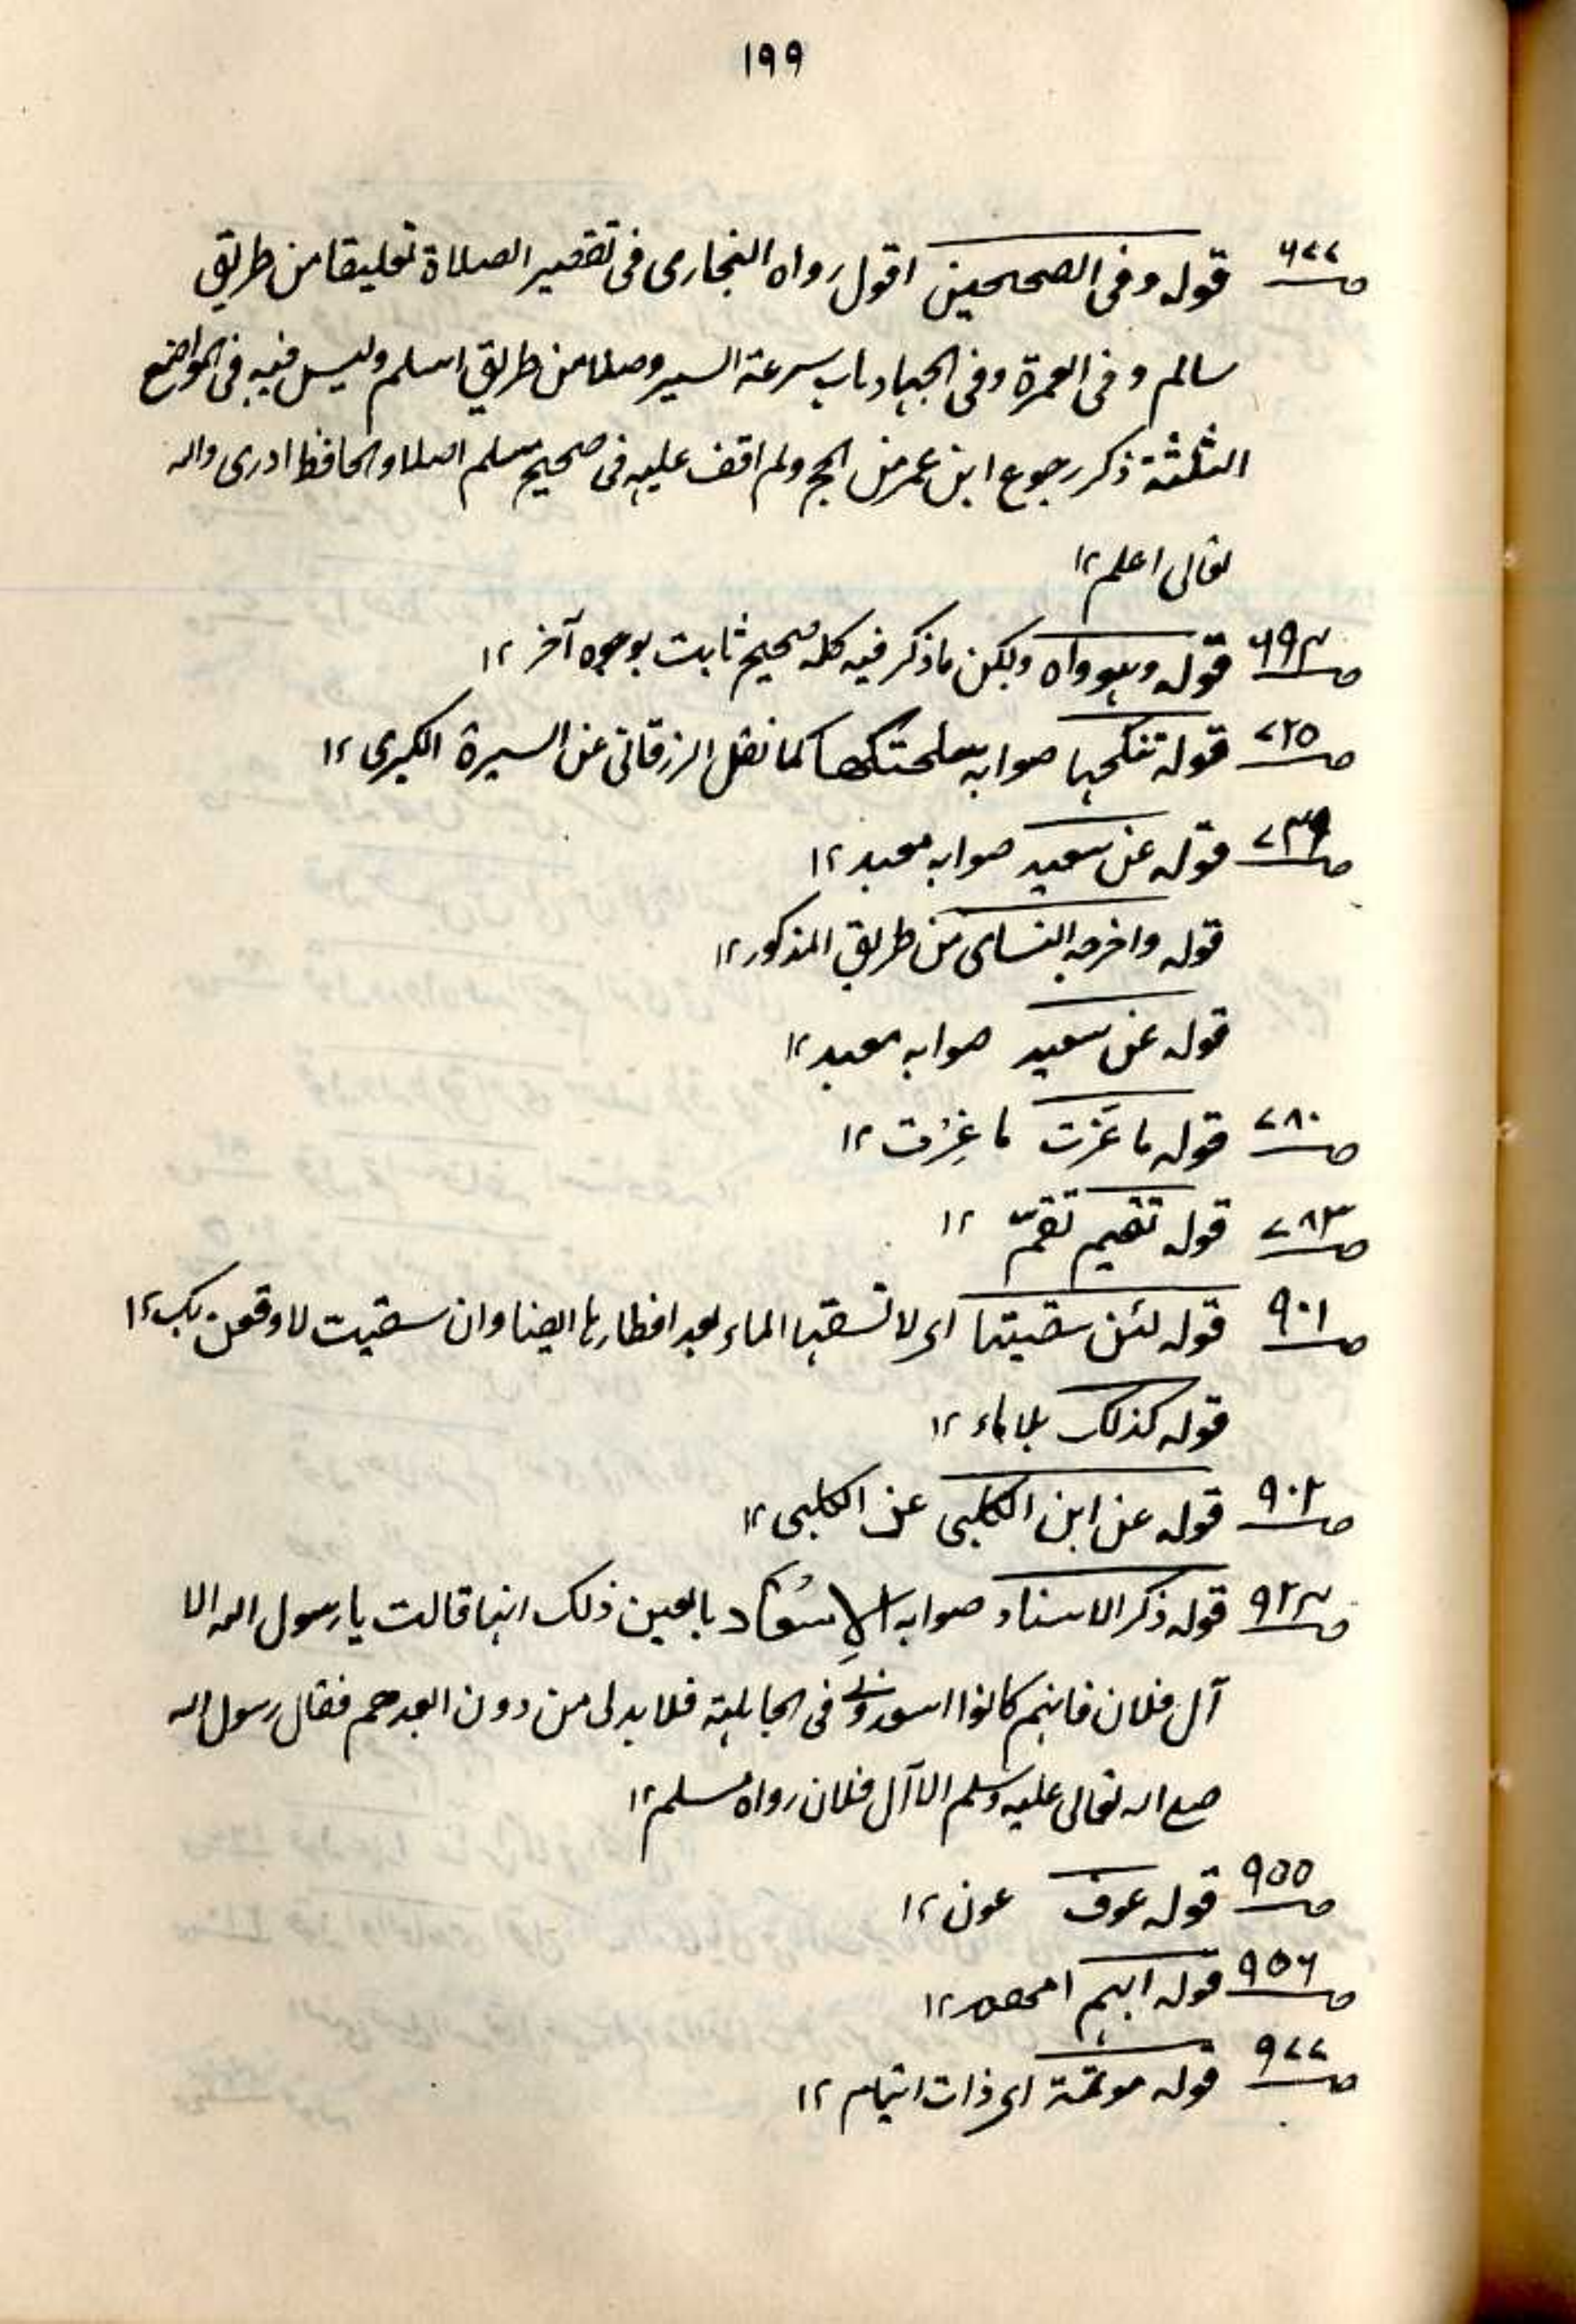 ١٩٩
ص٦٧٧ قوله وفی الصحیحین اقول رواه البخاری فی تقصیر الصلاة تعلیقا من طریق
سالم و فی العمرة وفی الجهاد باب سرعة السیر وصلا من طریق اسلم ولیس فیه فی المواضع
الثلثة ذکر رجوع ابن عمر من الحج ولم اقف علیه فی صحیح مسلم اصلا والحافظ ادری والله
تعالی اعلم ١٢
ص٦٩٤ قوله وهو واه ولکن ماذکر فیه کله صحیح ثابت بوجوه آخر ١٢
ص٧٢٥ قوله تنکحها صوابه کما نقل الزرقانی عن السیرة الکبری ١٢
ص٧٣٩ قوله عن سعید صوابه معبد ١٢
قوله واخرجه النسائی من طریق المذکور ١٢
قوله عن سعید صوابه معبد ١٢
ص٧٨٠ قوله ما عَزت ما غِرْت ١٢
ص٧٨٣ قوله تقیم تقمّ ١٢
ص٩٠١ قوله لئن سقیتها ای لا تسقها الماء بعد افطارها ایضا وان سقیت لاوقعن بک ١٢
قوله کذلک بلا ماء ١٢
ص٩٠٢ قوله عن ابن الکلبی عن الکلبی ١٢
ص٩٢٤ قوله ذکر الاسناد صوابه الاِسْعَاد بالعین ذلک انها قالت یا رسول الله الا
آل فلان فانهم کانوا اسعدونی فی الجاهلیة فلا بد لی من دون اسعدهم فقال رسول الله
صلی الله تعالی علیه وسلم الا آل فلان رواه مسلم ١٢
ص٩٥٥ قوله عوف عون ١٢
ص٩٥٦ قوله ابهم ١٢
ص٩٧٧ قوله موتمة ای ذات ایتام ١٢